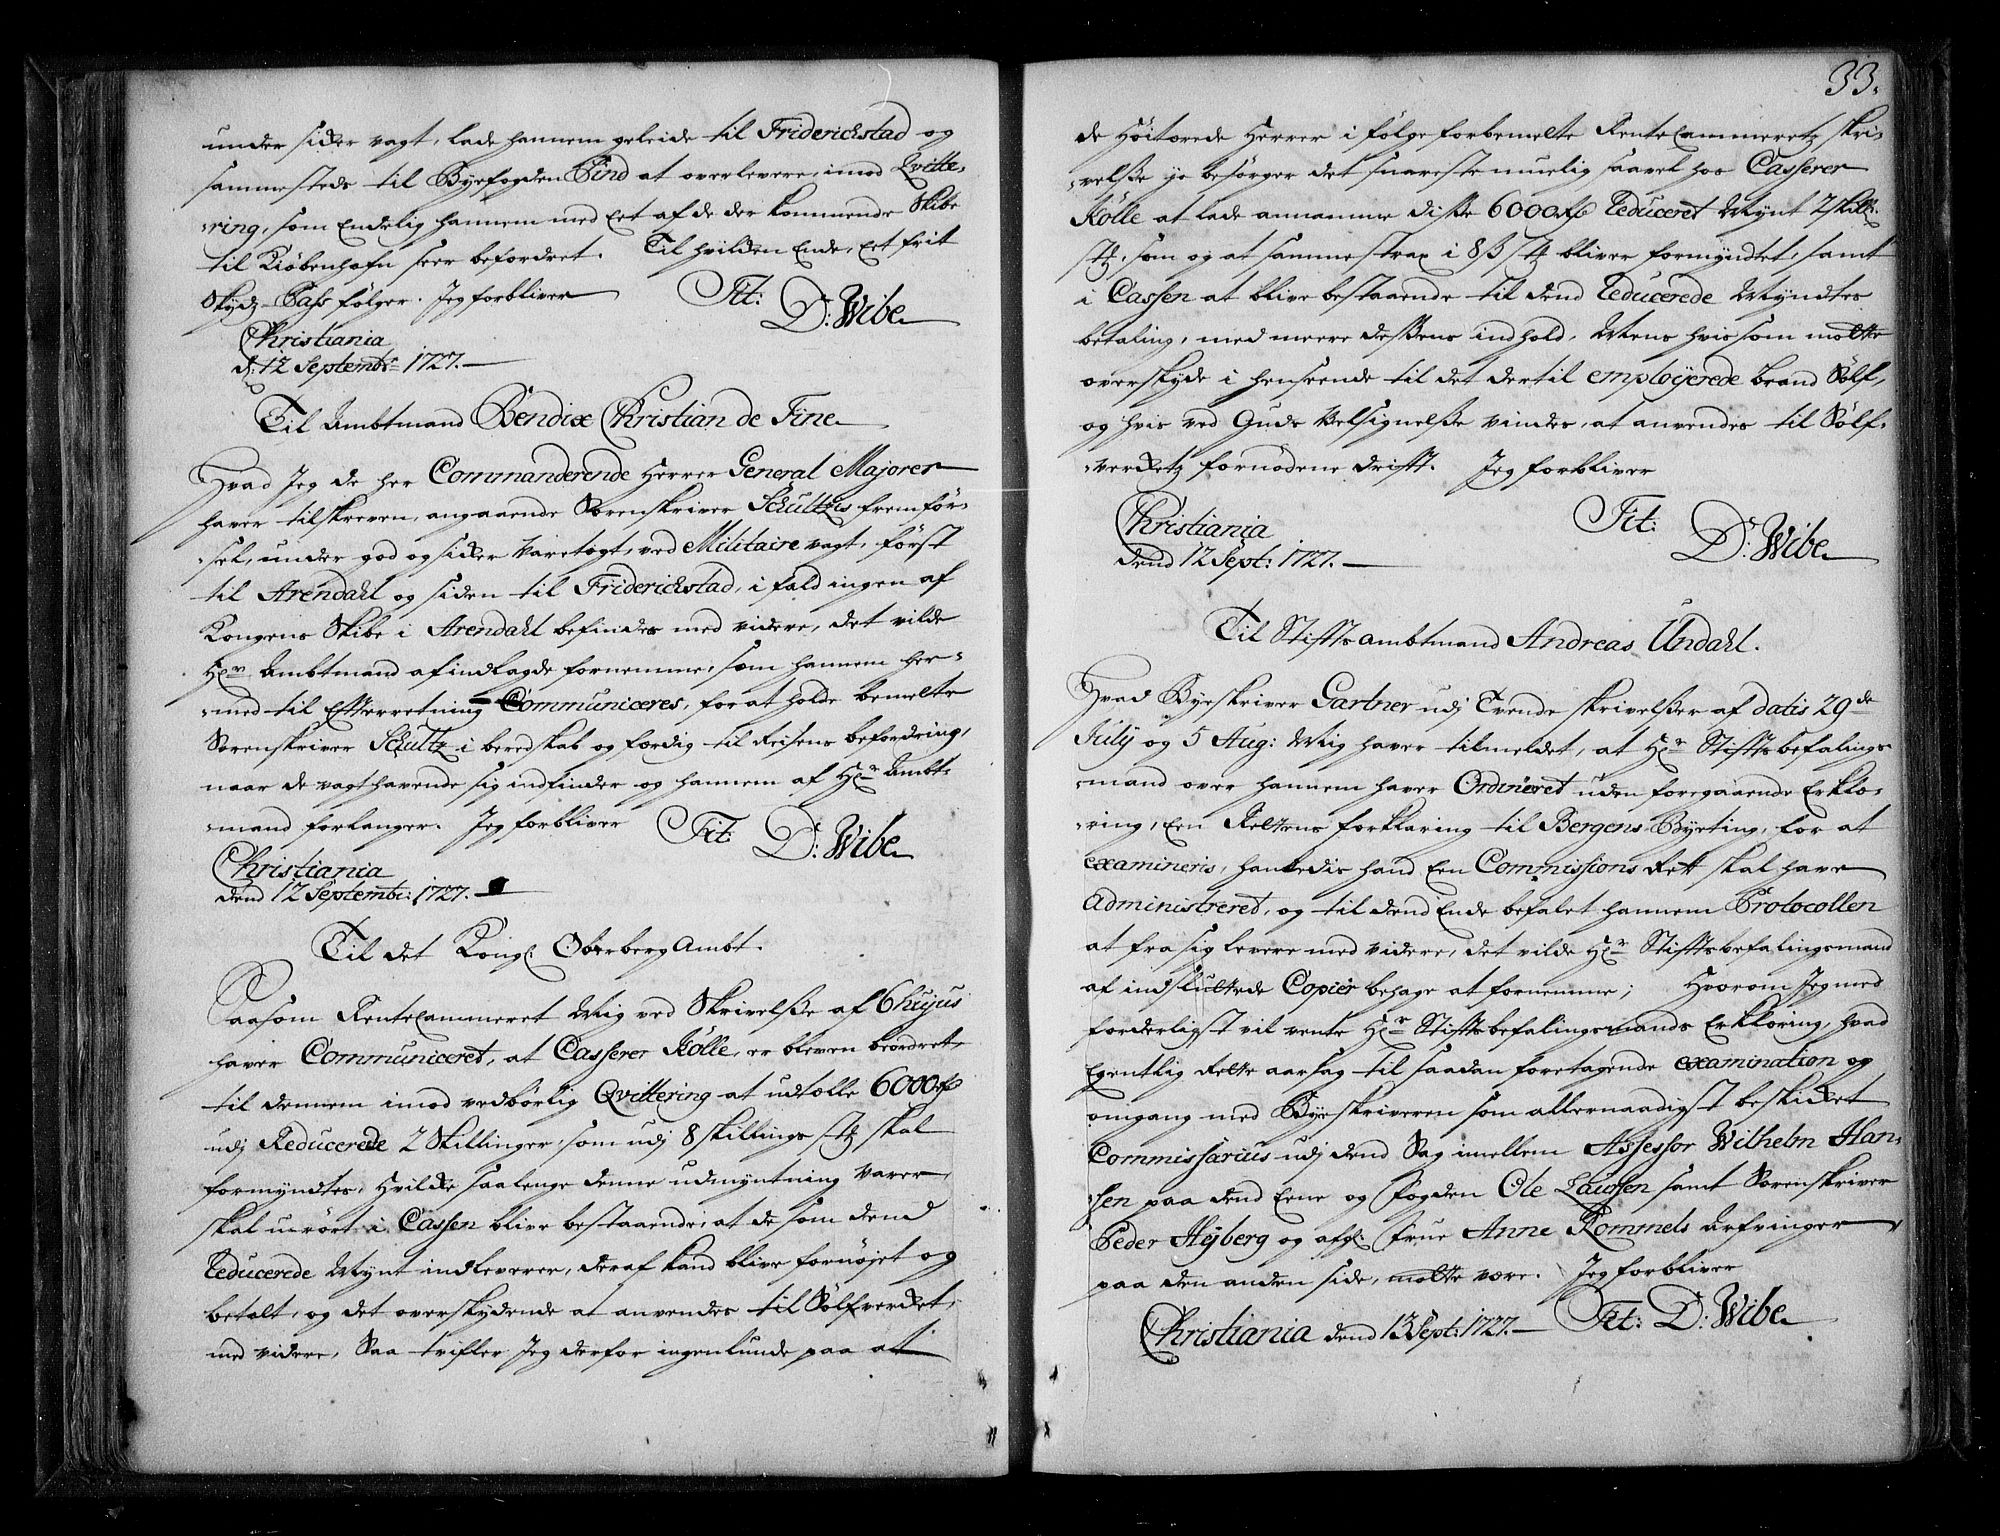 under sicker vagt, lade hannem geleide til Friderichstad og
sammesteds til Byefogden Pind at overlevere, imod Qvitte-
-ring, som Endelig hannem med Eet af de der kommende Skibe
til Kiøbenhafn seer befordret. Til hvilcken Ende, Eet frit
Skydz Pass følger. Jeg forbliver
Tit: D: Wibe
Christiania
d: 12 Septembr 1727.
Til Ambtmand Bendix Christian de Fine
Hvad Jeg de her Commanderende Herrer General Majorer
haver tilskreven, angaaende Sorenskriver Schultzis fremfør-
-sel, under god og sicker Varetegt, ved Militaire vagt, først
til Arendahl og siden til Friderichstad, i fald ingen af
Kongens Skibe i Arendahl befindes med videre, det vilde
Hr Ambtmand af indlagde fornemme, som hannem her-
-med til Efterretning Communiceres, for at holde bemelte
Sorenskriver Schultz i beredskab og færdig til Reisens befordring,
naar de vagthavende sig indfinder og hannem af Hr Ambt-
-mand forlanger. Jeg forbliver
Tit: D: Wibe
Christiania
dend 12 Septembr: 1727.
Til det Kongl: OberbergAmbt.
Saasom RenteCammeret Mig ved Skrivelße af 6 hujus
haver Communiceret, at Casserer Kölle, er bleven beordret,
til dennem imod vedbørlig Qvittering at udtælle 6000 rd
udj Reducerede 2 Skillinger, som udj 8 skillings st: skal
formyndtes, Hvilcke saalenge denne udmyntning varer,
skal urørt i Cassen blive bestaaende, at de som dend
Reducerede Mynt indleverer, deraf kand blive fornøjet og
betalt, og det overskydende at anvendes til Sølfvercket,
med videre, Saa tvifler Jeg derfor ingenlunde paa at
33.
de Høitærede Herrer i følge forbemelte RenteCammeretz skri-
-velße jo besørger det snareste muelig saavel hos Casserer
Kölle at lade annamme diße 6000 rd Reduceret Mynt 2 skill:
st:, som og at samme strax i 8 ß st: bliver formyndtet, samt
i Cassen at blive bestaaende til dend Reducerede Myndtes
betaling, med meere deßens indhold, Mens hvis som motte
overskyde i henseende til det dertil employerede brand Sølf,
og hvis ved Guds Velsignelße vindes, at anvendes til Sølf-
-verketz fornødene drifft. Jeg forbliver
Tit: D: Wibe
Christiania
dend 12 Sept: 1727.
Til Stifftsambtmand Andreas Undahl.
Hvad Byeskriver Gartner udj Tvende skrivelßer af datis 29de
July og 5 Aug: Mig haver tilmeldet, at Hr Stifftsbefalings-
-mand over hannem haver Ordineret uden foregaaende Erklæ-
-ring, Een Rettens forklaring til Bergens Byeting, for at
examineris, hvorledis hand Een Commissions Rett skal have
administreret, og til dend Ende befalet hannem Protocollen
at fra sig levere med videre, det vilde Hr Stifftsbefalingsmand
af indsluttede Copier behage at fornemme; Hvorom Jeg med
forderligst vil vente Hr Stifftsbefalingsmands Erklæring, hvad
Egentlig Rette aarsag til saadan foretagende examination og
omgang med Byeskriveren som allernaadigst beskicket
Commissarius udj dend Sag imellem Assessor Wilhelm Han-
-sen paa dend Eene og Fogden Ole Laursen samt Sorenskriver
Peder Heyberg og afgl: Frue Anne Rommels Arfvinger
paa den anden side, motte være. Jeg forbliver
Christiania dend 13 Sept: 1727. Tit: D: Wibe